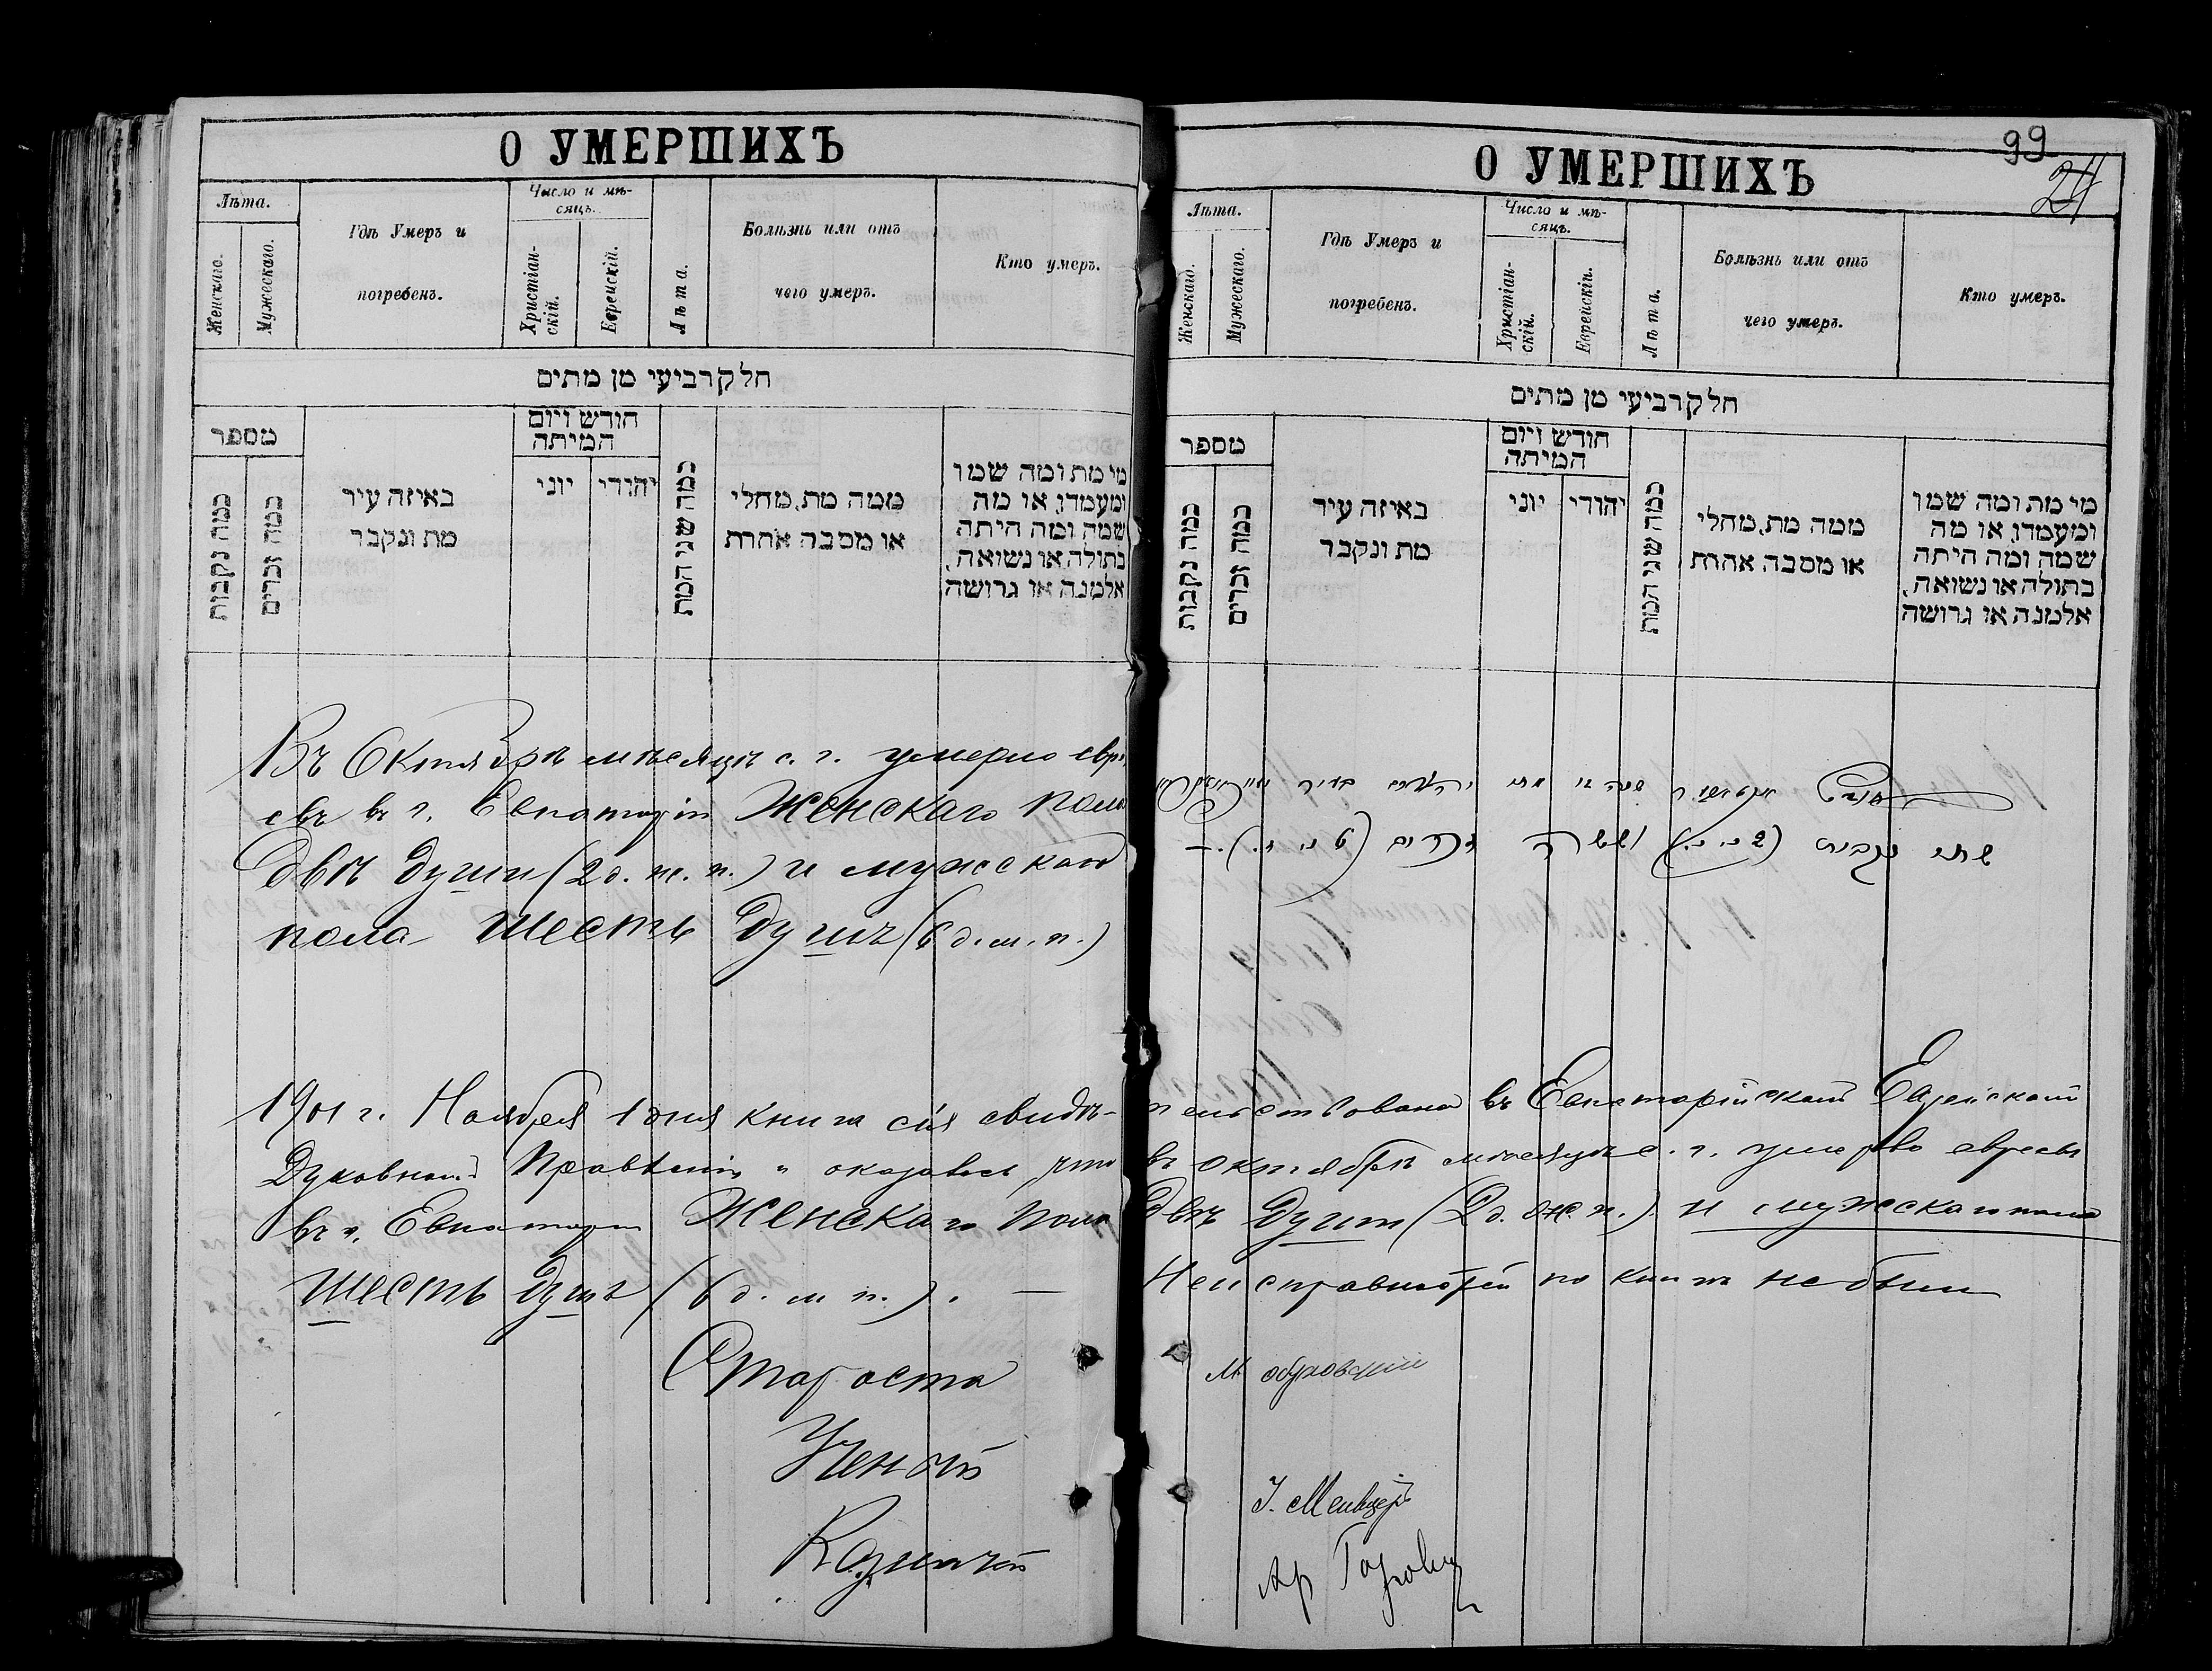 О УМЕРШИХЪ
Лѣта.
Женскаго.
Мужескаго.
Гдѣ Умеръ и
погребенъ.
Число и мѣ-
сяцъ.
Христіан-
скій.
Еврейскій.
Лѣта.
Болѣзнь или отъ
чего умеръ.
Кто умеръ.
חלק רביעי מן מתים
מספר
כמה נקבות
כמה זכרים
באיזה עיר
מת ונקבר
חודש ויום
המיתה
יוני
יהודי
כמה שני המת
ממה מת, מחלי
או מסבה אחרת
מי מת ומה שמו
ומעמדו, או מה
שמה ומה היתה
בתולה או נשואה,
אלמנה או גרושה
Въ Октябрѣ мѣсяцѣ с. г. умерло евре
евъ въ г. Евпаторіи Женскаго пола
двѣ души (2 д. ж. п.) и мужскаго
пола шесть душъ (6 д. м. п.)
1901 г. Ноября 1 дня книга сія свидѣ-
Духовномъ Правленіи и оказалось что
въ г. Евпаторіи Женскаго пола
шесть душъ (6 д. м. п.). —
Староста
Ученый
Казначей
99
24
О УМЕРШИХЪ
Лѣта.
Женскаго.
Мужескаго.
Гдѣ Умеръ и
погребенъ.
Число и мѣ-
сяцъ.
Христіан-
скій.
Еврейскій.
Лѣта.
Болѣзнь или отъ
чего умеръ.
Кто умеръ.
חלק רביעי מן מתים
מספר
כמה נקבות
כמה זכרים
באיזה עיר
מת ונקבר
חודש ויום
המיתה
יוני
יהודי
כמה שני המת
ממה מת, מחלי
או מסבה אחרת
מי מת ומה שמו
ומעמדו, או מה
שמה ומה היתה
בתולה או נשואה,
אלמנה או גרושה
שתי נקבות (2 נ׳ נ׳) וששה זכרים (6 נ׳ ז׳). —
тельствована въ Евпаторійскомъ Еврейскомъ
въ октябрѣ мѣсяцѣ с. г. умерло евреевъ
двѣ души (2 д. ж. п.) и мужскаго пола
Неисправностей по книгѣ не было
М
І. Мельцеръ
Ар